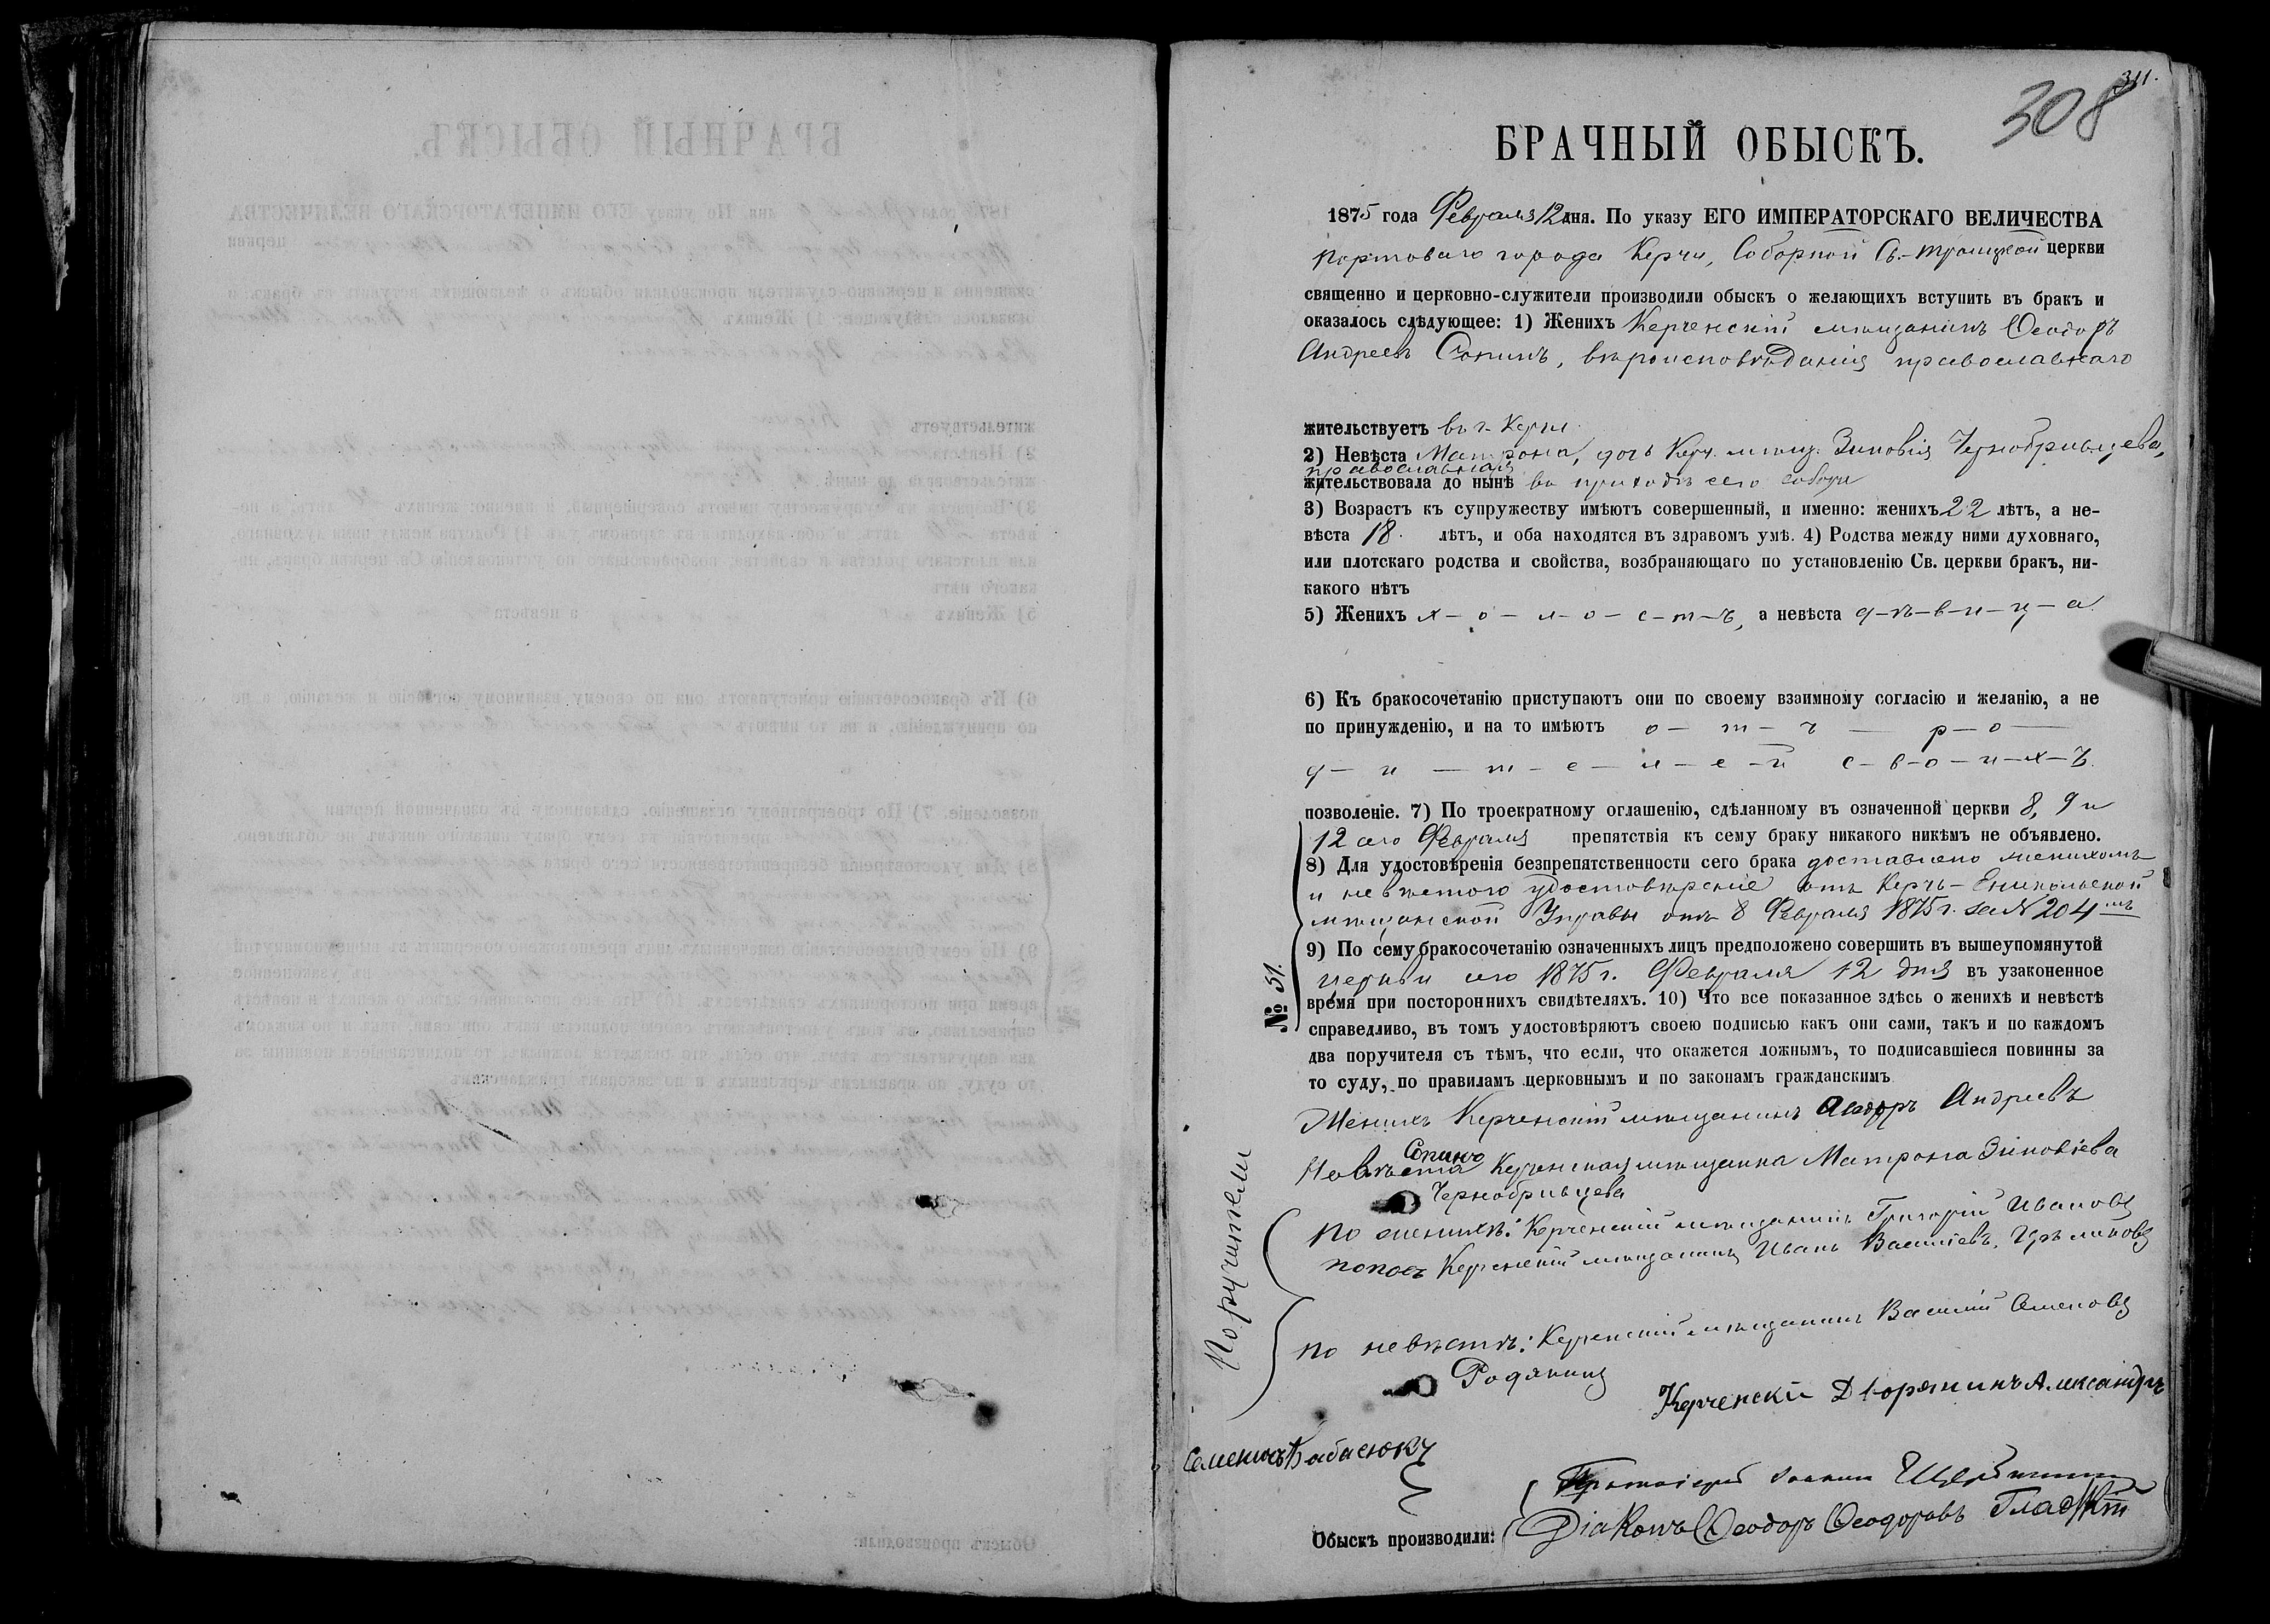 311.
308
БРАЧНЫЙ ОБЫСКЪ.
1875 года Февраля 12 дня. По указу ЕГО ИМПЕРАТОРСКАГО ВЕЛИЧЕСТВА
портоваго города Керчи, Соборной Св.-Троицкой церкви
священно и церковно-служители производили обыскъ о желающихъ вступить въ бракъ и
оказалось слѣдующее: 1) Женихъ Керченскій мѣщанинъ Ѳеодоръ
Андреевъ Сопинъ, вѣроисповѣданія православнаго
жительствуетъ въ г. Керчи.
2) Невѣста Матрона, дочь Керч. мѣщ. Зиновія Чернобривцева,
православная
жительствовала до нынѣ въ приходѣ сего собора
3) Возрастъ къ супружеству имѣютъ совершенный, и именно: женихъ 22 лѣтъ, а не-
вѣста 18. лѣтъ, и оба находятся въ здравомъ умѣ. 4) Родства между ними духовнаго,
или плотскаго родства и свойства, возбраняющаго по установленію Св. церкви бракъ, ни-
какого нѣтъ
5) Женихъ х-о-л-о-с-т-ъ, а невѣста д-ѣ-в-и-ц-а.
6) Къ бракосочетанію приступаютъ они по своему взаимному согласію и желанію, а не
по принужденію, и на то имѣютъ о-т-ъ - р-о-
д-и-т-е-л-е-й с-в-о-и-х-ъ.
позволеніе. 7) По троекратному оглашенію, сдѣланному въ означенной церкви 8, 9 и
12 сего Февраля препятствія къ сему браку никакого никѣмъ не объявлено.
8) Для удостовѣренія безпрепятственности сего брака доставлено женихомъ
и невѣстою удостовѣреніе отъ Керчь-Еникольской
мѣщанской Управы отъ 8 Февраля 1875 г. за № 204
9) По сему бракосочетанію означенныхъ лицъ предположено совершить въ вышеупомянутой
церкви сего 1875 г. Февраля 12 дня въ узаконенное
время при постороннихъ свидѣтеляхъ. 10) Что все показанное здѣсь о женихѣ и невѣстѣ
справедливо, въ томъ удостовѣряютъ своею подписью какъ они сами, такъ и по каждомъ
два поручителя съ тѣмъ, что если, что окажется ложнымъ, то подписавшіеся повинны за
то суду, по правиламъ церковнымъ и по законамъ гражданскимъ
№ 51.
Женихъ Керченскій мѣщанинъ Андреевъ
Сопинъ
Невѣста Керченская мѣщанка Матрона Зиновіева
Чернобривцева
Поручители
по женихѣ: Керченскій мѣщанинъ Григорій Ивановъ
Керченскій мѣщанинъ Иванъ Васильевъ
по невѣстѣ: Керченскій мѣщанинъ Василій Семеновъ
Родякинъ
Керченскі Дворянинъ Александръ
Обыскъ производили: Протоіерей Іоаннъ
Діаконъ Ѳеодоръ Ѳеодоровъ Гладкій